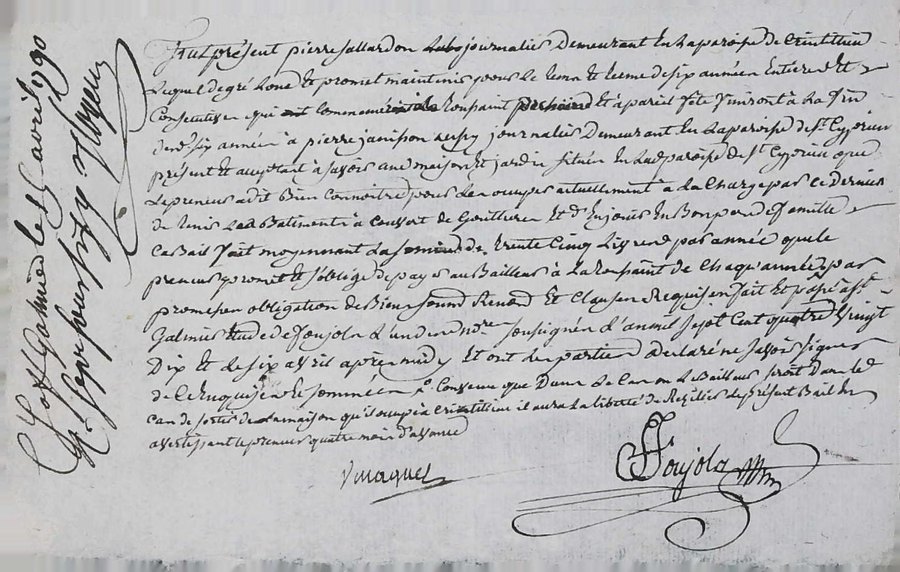 Fut présent pierre sallardon Labo journalier Demeurant En La paroisse de Crintillieu
Lequel de gré Loue Et promet maintenir pour Le tems Et terme de six années Entieres Et
Consecutives qui ont commencé à la toussaint Et à pareil fête finiront à La fin
desd. six années à pierre janisson aussy journalier Demeurant En La paroisse de St. Cyprien
présent Et acceptant à savoir une maison Et jardin situés En Lad. paroisse de St. Cyprien que
Le preneur a dit Bien Connoitre pour Les occuper actuellement à La Charge par ce dernier
de tenir Les Batiments à Couvert de Gouttieres Et d'En jouir En Bon pere de famille
Ce Bail fait moyennant La somme de trente Cinq Livres par année que le
preneur promet Et s'oblige de payer au Bailleur à La toussaint de Chaqu'année, par
promesses obligation de Biens soumd. Renond. Et Clauses Requises fait Et passé a St.
Galmier Etude de Foujols L'un des nres. soussignés L'an mil sept Cent quatre Vingt
Dix Et Le six avril après midy Et ont Les parties Declaré ne savoir signer
de Ce Enquises Et sommées Convenu que Dans Le Cas ou Le Bailleur seroit Dans le
Cas de sortir de La maison qu'il occupe à Crintillieu il aura La liberté de Resilier Le présent Bail En
avertissant Le preneur quatre mois d'avance
Foujols
St. Galmier le avril 1790